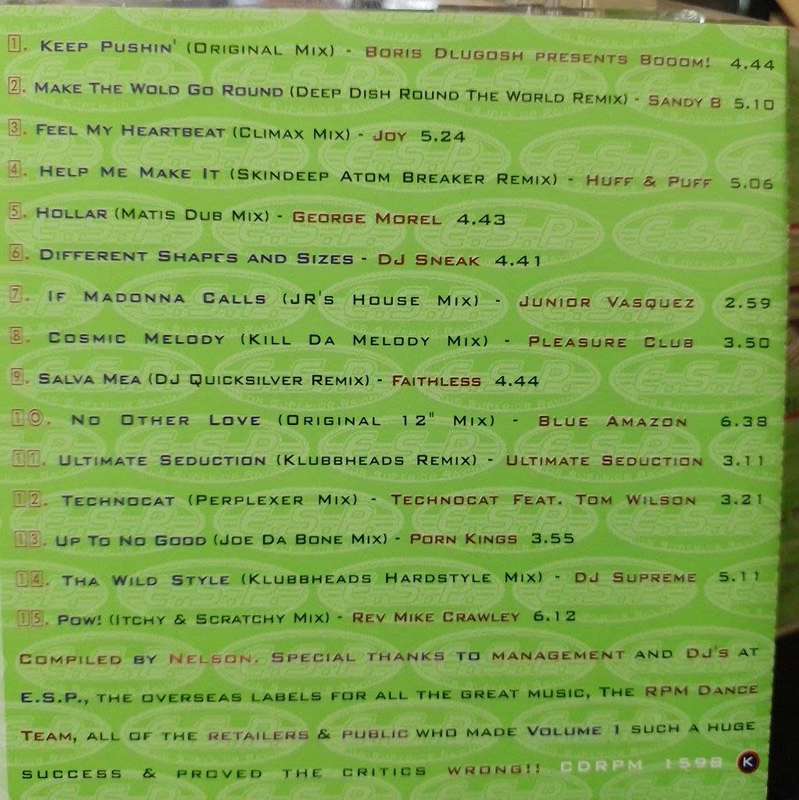 1. Keep Pushin' (Original Mix) - Boris Dlugosh presents Booom! 4.44
2. Make The Wold Go Round (Deep Dish Round The World Remix) - Sandy B 5.10
3. Feel My Heartbeat (Climax Mix) - Joy 5.24
4. Help Me Make It (Skindeep Atom Breaker Remix) - Huff & Puff 5.06
5. Hollar (Matis Dub Mix) - George Morel 4.43
6. Different Shapes and Sizes - DJ Sneak 4.41
7. If Madonna Calls (JR's House Mix) - Junior Vasquez 2.59
8. Cosmic Melody (Kill Da Melody Mix) - Pleasure Club 3.50
9. Salva Mea (DJ Quicksilver Remix) - Faithless 4.44
10. No Other Love (Original 12" Mix) - Blue Amazon 6.38
11. Ultimate Seduction (Klubbheads Remix) - Ultimate Seduction 3.11
12. Technocat (Perplexer Mix) - Technocat Feat. Tom Wilson 3.21
13. Up To No Good (Joe Da Bone Mix) - Porn Kings 3.55
14. Tha Wild Style (Klubbheads Hardstyle Mix) - DJ Supreme 5.11
15. Pow! (Itchy & Scratchy Mix) - Rev Mike Crawley 6.12
Compiled by Nelson. Special thanks to management and DJ's at
E.S.P., the overseas labels for all the great music, The RPM Dance
Team, all of the retailers & public who made Volume 1 such a huge
success & proved the critics wrong!! CDRPM 1598 K